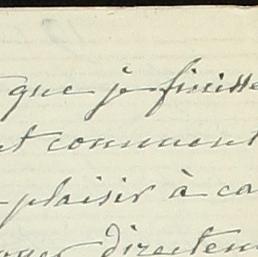 que je finisse
nt comment
plaisir à ca
directem